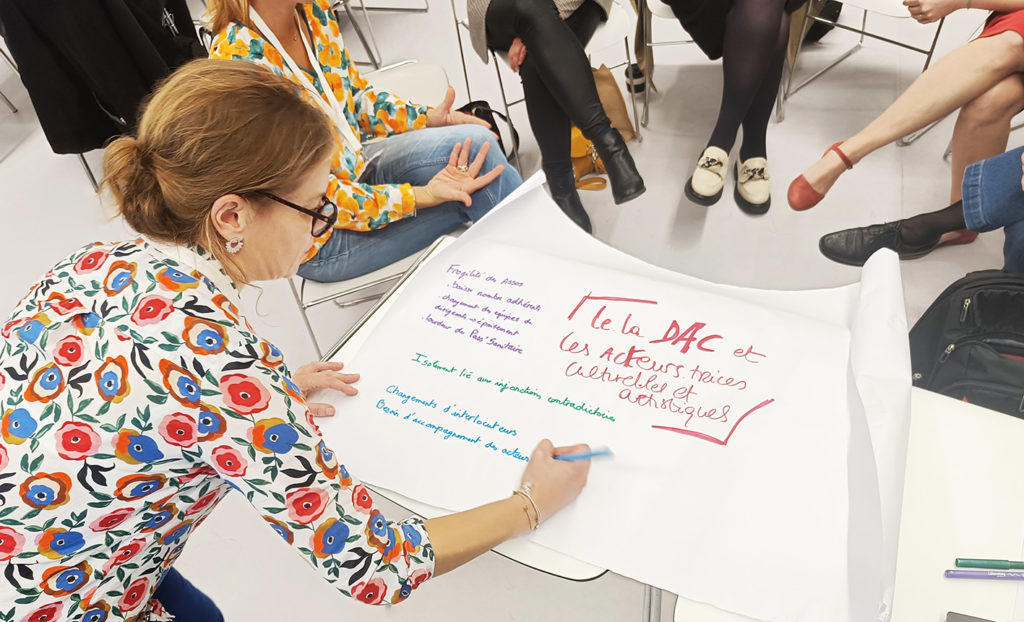 Fragilité des Assos
. baisse nombre adhérents
. changement des équipes de
dirigeants → épuisement
. lourdeur du Pass Sanitaire
Isolement lié aux injonctions contradictoires
Changements d'interlocuteurs
Besoin d'accompagnement des acteurs
le la DAC et
les Acteurs trices
culturelles et
artistiques